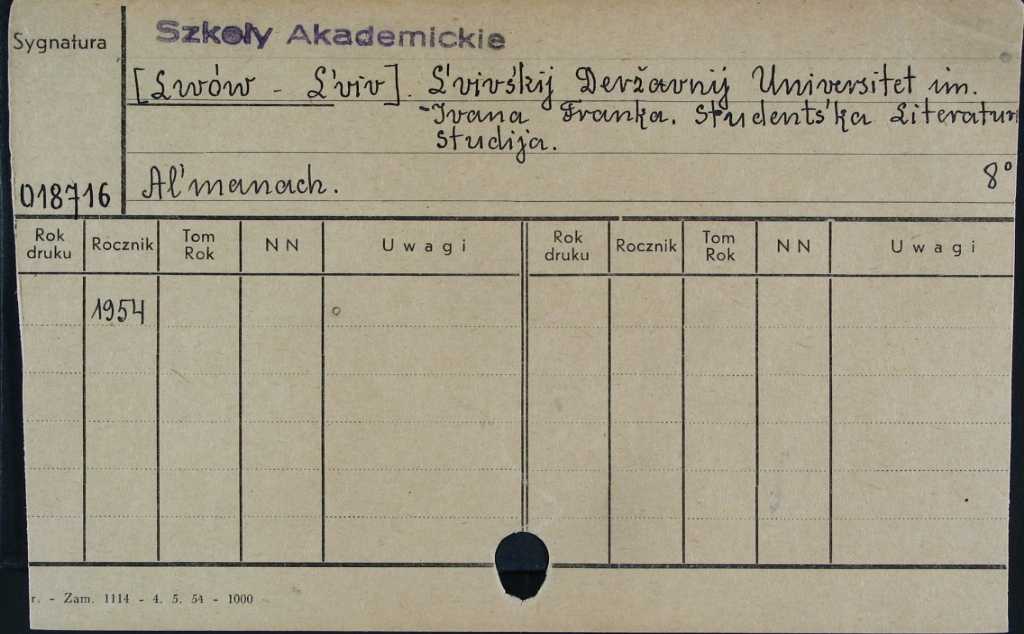 Sygnatura
Szkoły Akademickie
[Lwów - L'viv]. L'vivs'kij Deržavnij Universitet im.
Ivana Franka. Students'ka Literatur
Studija.
018716
Al'manach.
8°
Rok druku Rocznik Tom Rok NN Uwagi Rok druku Rocznik Tom Rok NN Uwagi
1954
r. - Zam. 1114 - 4. 5. 54 - 1000